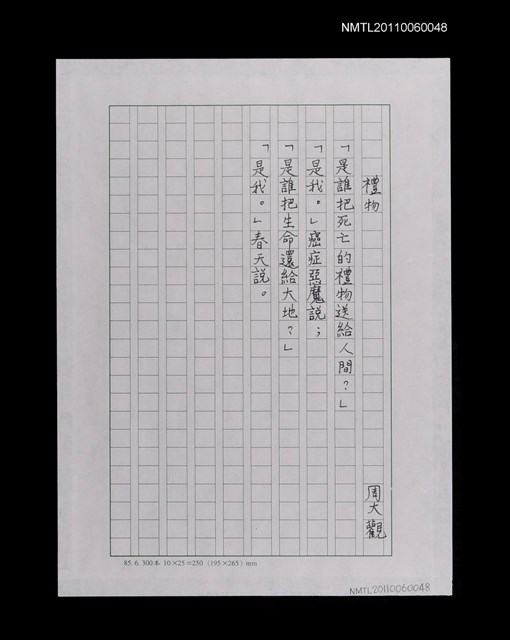 NMTL20110060048
禮物
周大觀
「是誰把死亡的禮物送給人間？」
「是我。」癌症惡魔說；
「是誰把生命還給大地？」
「是我。」春天說。
85.6.300本 10×25=250 (195×265) mm
NMTL20110060048